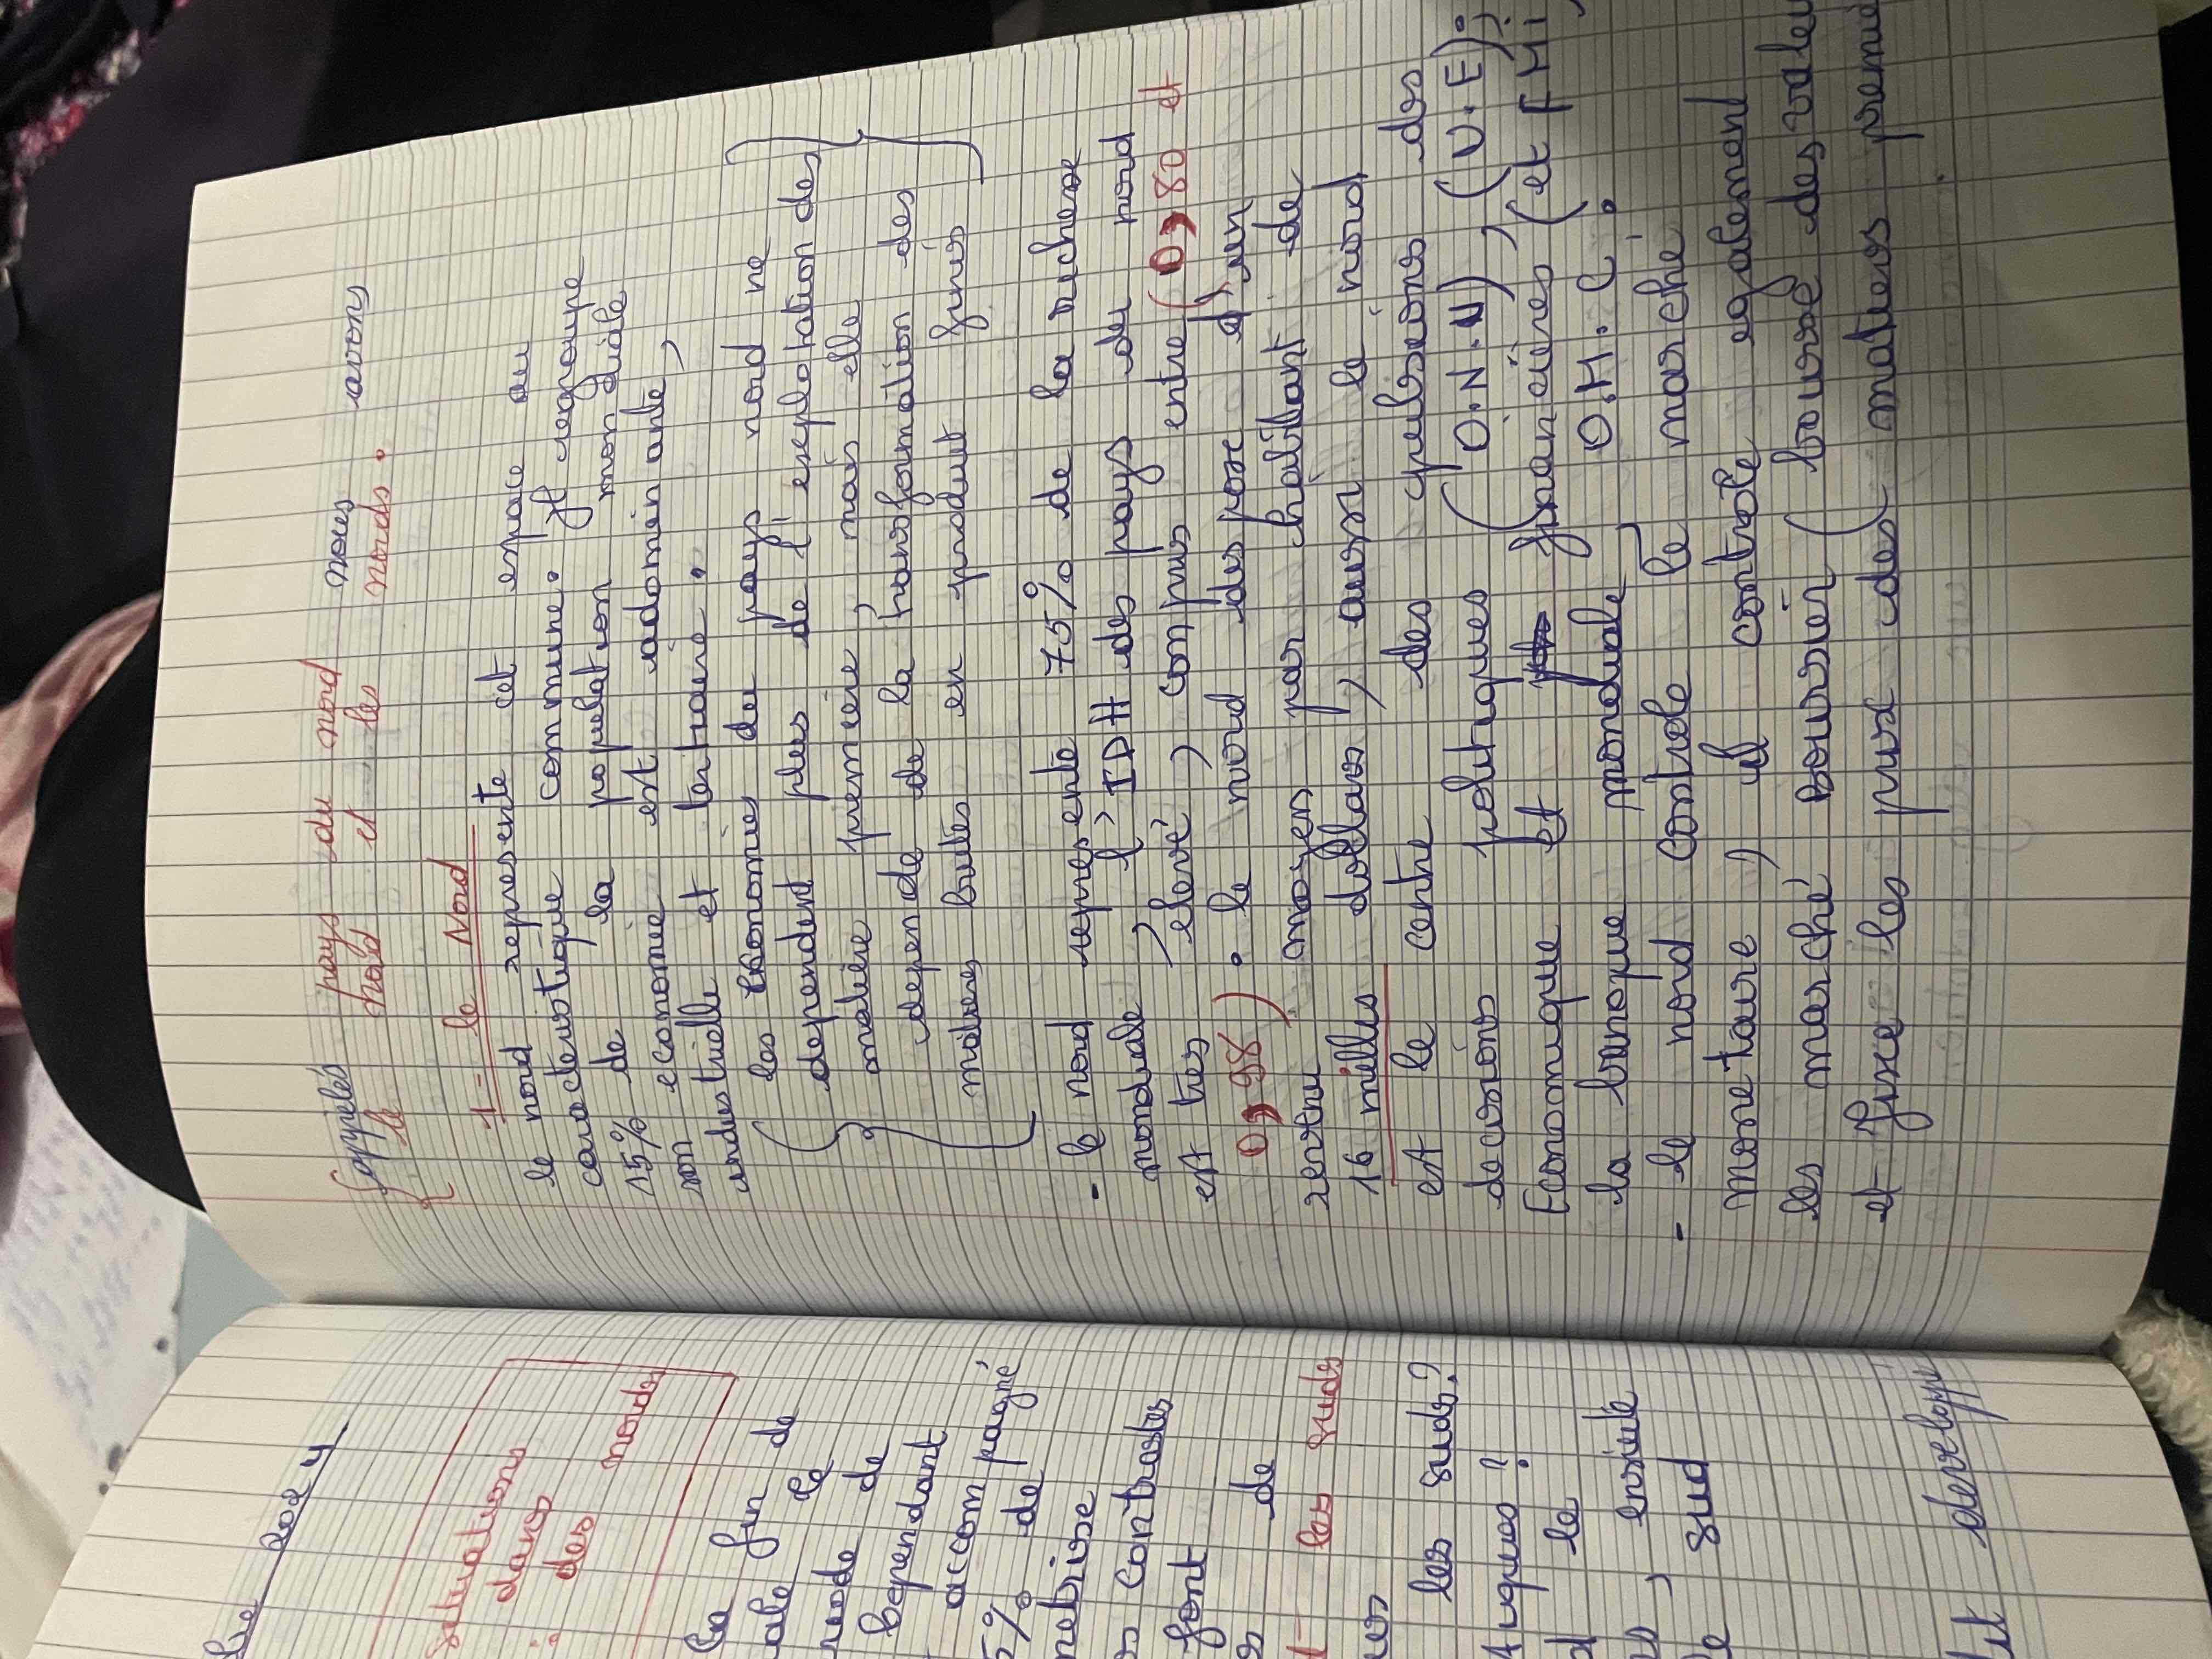 bre 2024
situations
dans
des nords
la fin de
ale le
mode de
Cependant
accompagné
5% de
metrise
s contrastes
font
s de
les suds
les suds?
tiques?
d le
es, ensuite
e sud
it developpé
appelés pays du nord nous avons
le nord et les nords.
1- le Nord
le nord represente cet espace au
caracteristique commune. Il regroupe
15% de la population mondiale
son economie est adominante,
industrielle et tertiaire.
les economies du pays nord ne
dependent plus de l'exploitation des
matière première, mais elle
depende de la transformation des
matières brutes en produit finis
- le nord represente 75% de la richesse
mondiale, l'IDH des pays du nord
est tres élevé, compris entre (0,80 et
0,98). le nord dispose d'un
revenu moyen par habitant de
16 milles dollars, aussi le nord
est le centre des pulsions des
decisions politiques (O.N.U), (U.E);
Economique et financières (et FMI,
la banque mondiale, O.M.C.
- le nord controle le marché
monetaire, il controle egalement
les marché boursier (bourse des valeu
et fixe les prix des matieres premiè